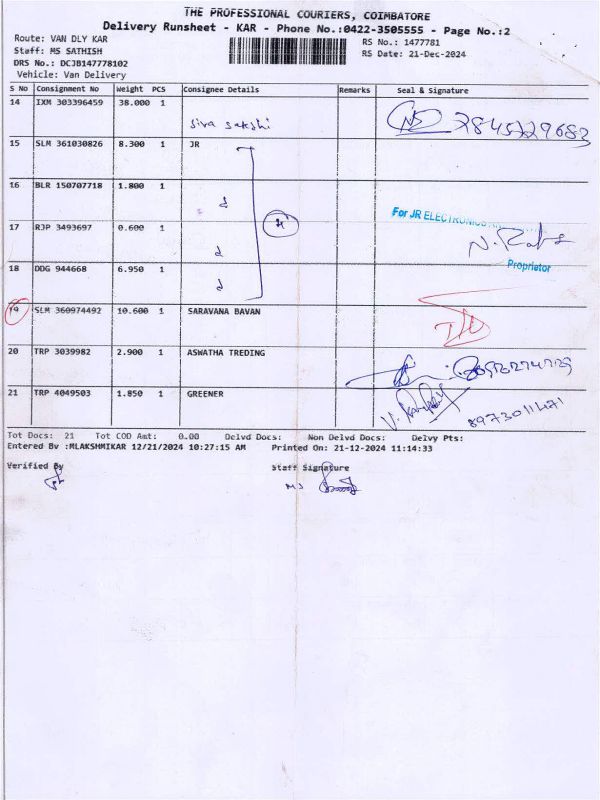 THE PROFESSIONAL COURIERS, COIMBATORE
Delivery Runsheet - KAR - Phone No.:0422-3505555 - Page No.:2
Route: VAN DLY KAR
RS No.: 1477781
Staff: MS SATHISH
RS Date: 21-Dec-2024
DRS No.: DCJB147778102
Vehicle: Van Delivery
S No Consignment No Weight PCS Consignee Details Remarks Seal & Signature
14 IXM 303396459 38.000 1
siva sakshi
15 SLM 361030826 8.300 1 JR
16 BLR 150707718 1.800 1
For JR ELECTRONICS
17 RJP 3493697 0.600 1
Proprietor
18 DDG 944668 6.950 1
19 SLM 360974492 10.600 1 SARAVANA BAVAN
20 TRP 3039982 2.900 1 ASWATHA TREDING
21 TRP 4049503 1.850 1 GREENER
Tot Docs: 21 Tot COD Amt: 0.00 Delvd Docs: Non Delvd Docs: Delvy Pts:
Entered By :MLAKSHMIKAR 12/21/2024 10:27:15 AM Printed On: 21-12-2024 11:14:33
Verified By Staff Signature
MS